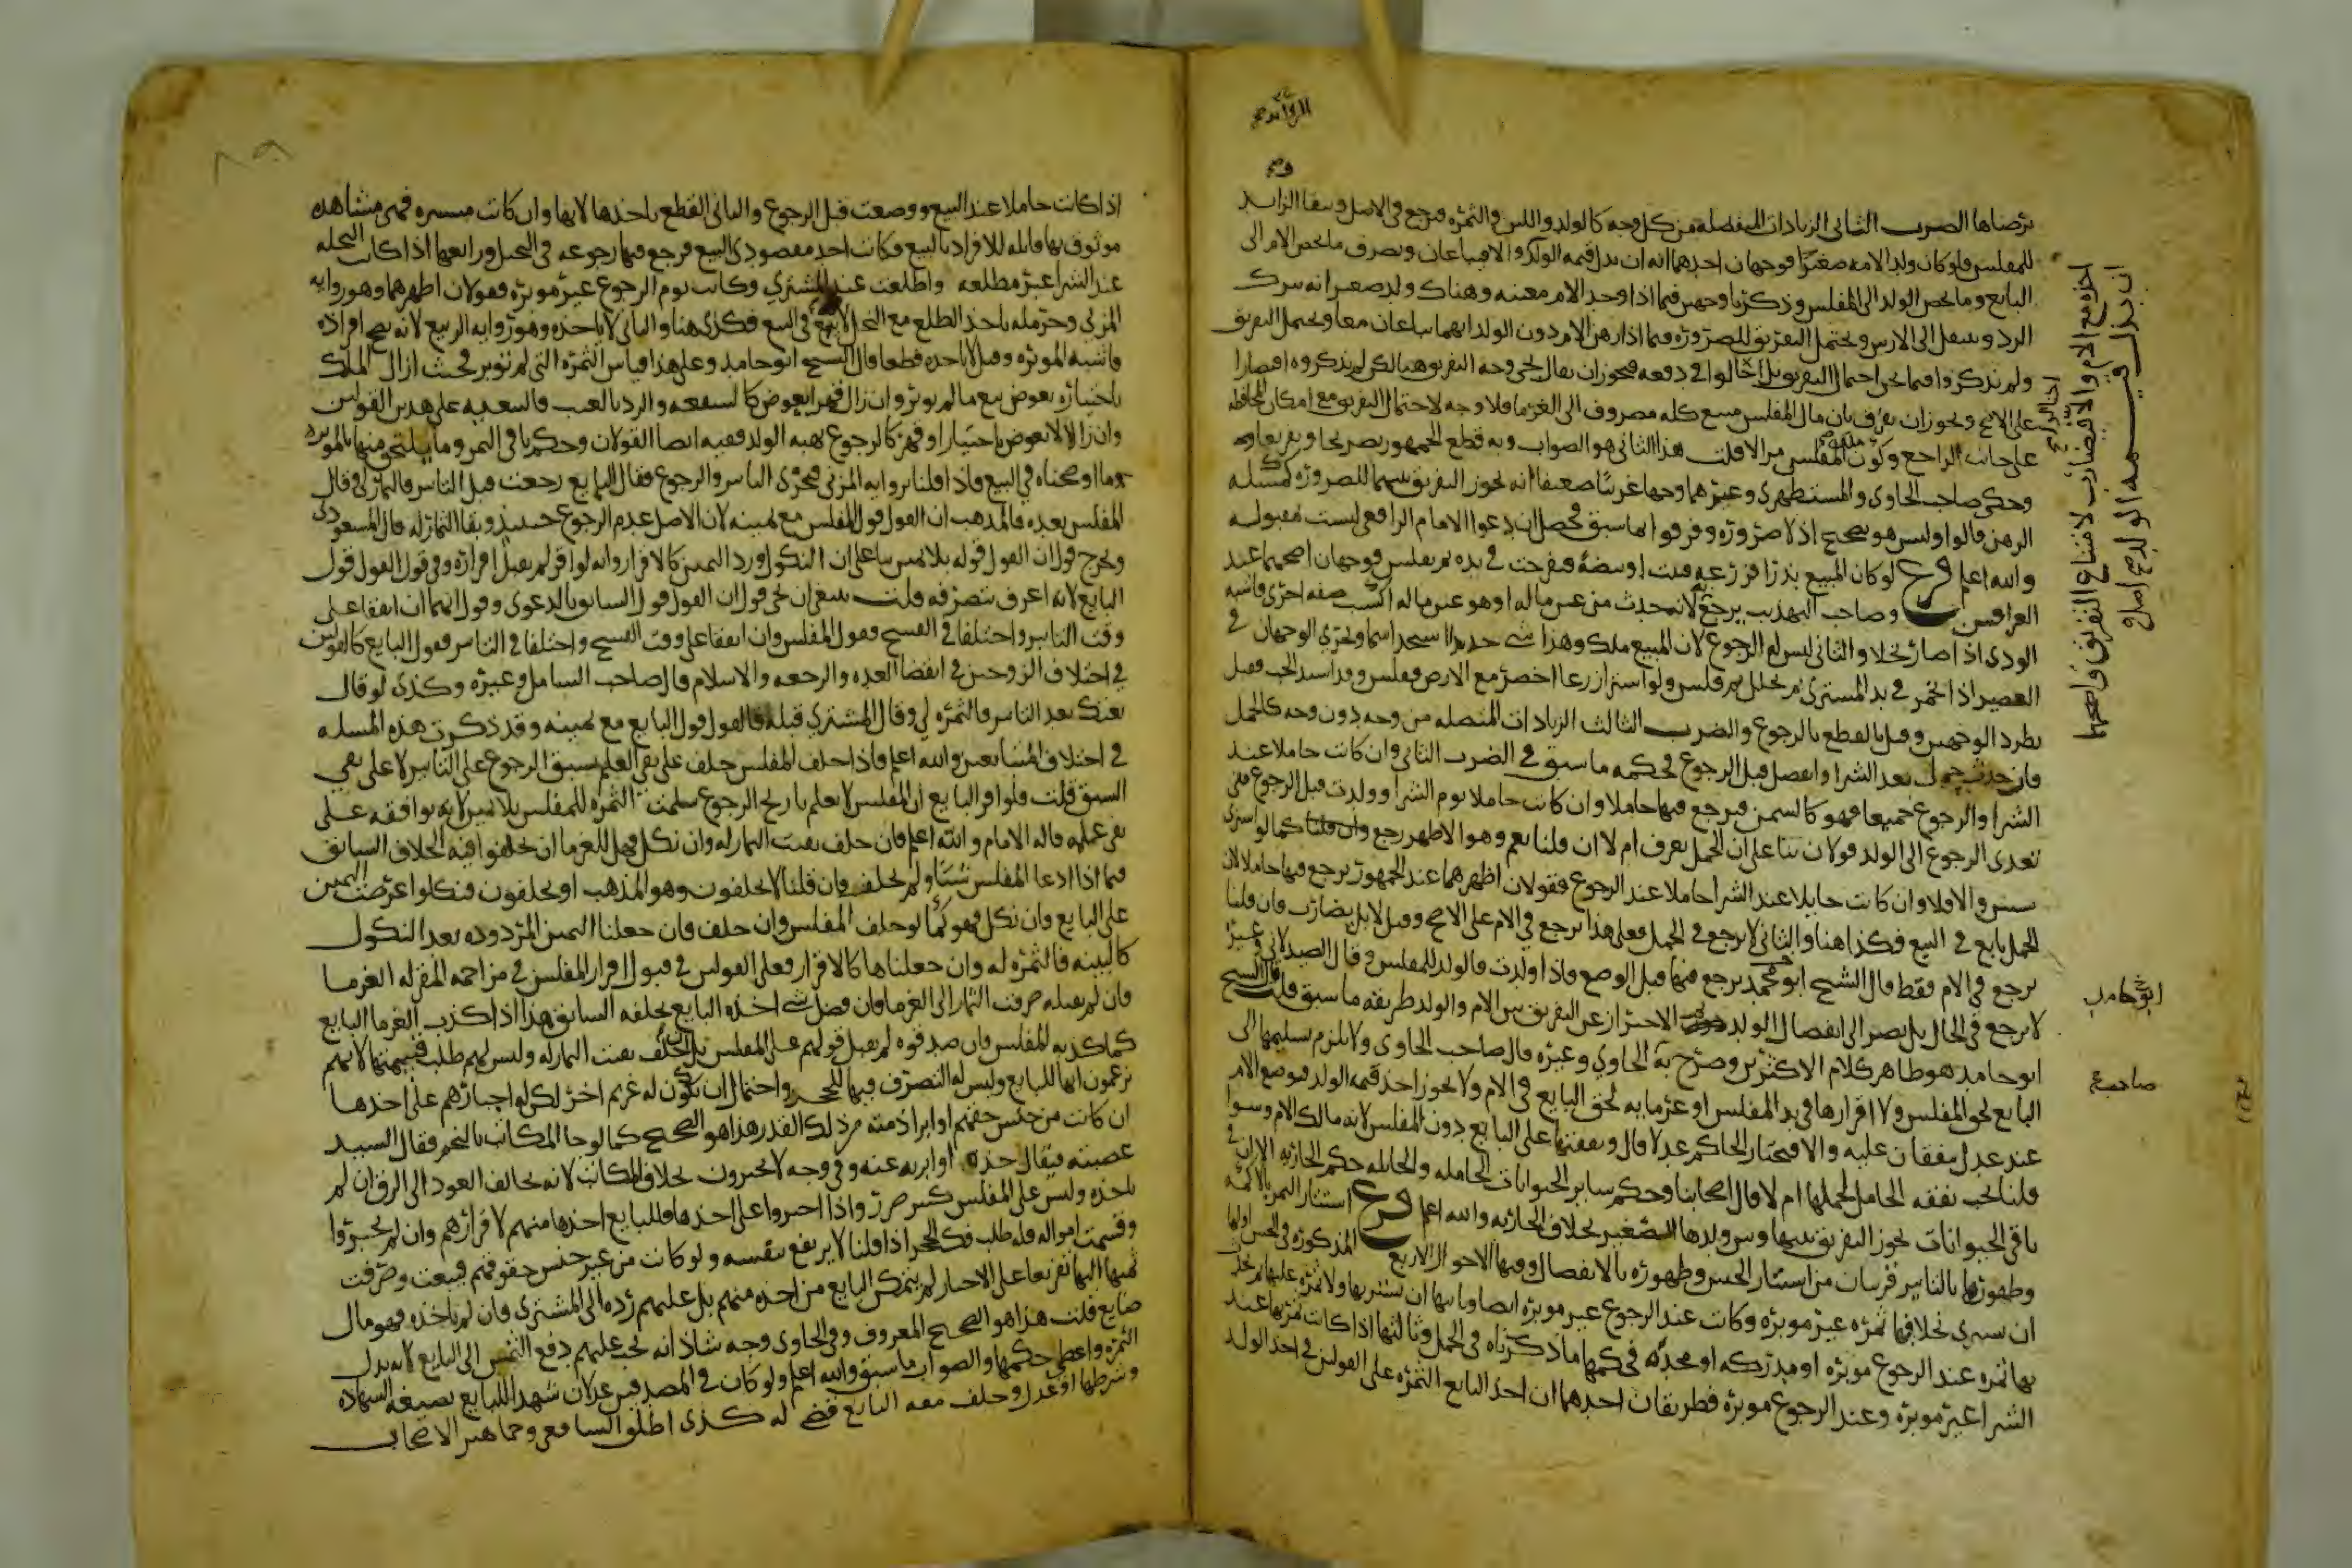 الزوائد صح
تعرضناها الضرب الثاني الزيادات المنفصلة من كل وجه كالولد واللبن والثمرة فيرجع في الاصل وتبقا الزوايد
للمفلس فلو كان ولد الامه صغيرا فوجهان احدهما انه ان بذل قيمه الولد والا فيباعان ويصرف ما يخص الام الى
البايع وما يخص الولد الى المفلس وذكرنا وجهين فيما اذا وجد الام معيبه وهناك ولد صغير انه ترك
الرد وينتقل الى الارش ويحتمل التفريق للضروره وفيما اذا رهن الام دون الولد انهما يباعان معا ويحتمل التفريق
ولم يذكروا فيما نحن احتمال التفريق بل احتالوا في دفعه فيجوز ان يقال يجي وجه التفريق هنا لكن لم يذكروه اقتصارا
على الاصح ويجوز ان يفرق بان مال المفلس مبيع كله مصروف الى الغرما فلا وجه لاحتمال التفريق مع امكان المحافظه
على جانب الراجع وكون ملك المفلس مزالا قلت هذا الثاني هو الصواب وبه قطع الجمهور تصريحا وتعريضا
وحكى صاحب الحاوي والمستظهري وغيرهما وجها غريبا ضعيفا انه يجوز التفريق بينهما للضروره كمسئله
الرهن قالوا وليس هو بصحيح اذ لا ضروره وفرقوا بما سبق فحصل ان دعوا الامام الرافعي ليست مقبوله
والله اعلم فرع لو كان المبيع بذرا فزرعه فنبت او بيضة ففرخت في يده ثم فلس فوجهان اصحهما عند
العراقيين وصاحب التهذيب يرجع لانه حدث من عين ماله او هو عين ماله اكتسب صفه اخرى فاشبه
الودي اذا صار نخلا والثاني ليس له الرجوع لان المبيع هلك وهذا شي جديد له اسم جديد ويجري الوجهان في
العصير اذا تخمر في يد المشتري ثم تخلل ثم فلس ولو اشترا زرعا اخضر مع الارض ففلس وقد اشتد الحب فقيل
بطرد الوجهين وقيل بالقطع بالرجوع والضرب الثالث الزيادات المتصله من وجه دون وجه كالحمل
فان حدث حمل بعد الشرا وانفصل قبل الرجوع فحكمه ما سبق في الضرب الثاني وان كانت حاملا عند
الشرا والرجوع جميعا فهو كالسمن فيرجع فيها حاملا وان كانت حاملا يوم الشرا وولدت قبل الرجوع ففي
تعدى الرجوع الى الولد قولان بنا على ان الحمل يعرف ام لا ان قلنا نعم وهو الاظهر رجع كما لو اشترى
شيئين والا فلا وان كانت حايلا عند الشرا حاملا عند الرجوع فقولان اظهرهما عند الجمهور يرجع فيها حاملا لان
الحمل تابع في البيع فكذا هنا والثاني لا يرجع في الحمل فعلى هذا يرجع في الام على الاصح وقيل لا بل يضارب فان قلنا
يرجع في الام فقط قال الشيخ ابو محمد يرجع فيها قبل الوضع فاذا ولدت فالولد للمفلس وقال الصيدلاني وغيره
لا يرجع في الحال بل يصبر الى انفصال الولد الاحتراز عن التفريق بين الام والولد طريقه ما سبق قلت قال الشيخ
ابو حامد هو ظاهر كلام الاكثرين وصرح به الحاوي وغيره قال صاحب الحاوي ولا يلزم تسليمها الى
البايع لحق المفلس ولا اقرارها في يد المفلس او غرمايه لحق البايع في الام ولا يجوز اخذ قيمه الولد فتوضع الام
عند عدل يتفقان عليه والا فيختار الحاكم عدلا قال ونفقتها على البايع دون المفلس لانه مالك الام وسوا
قلنا تجب نفقه الحامل لحملها ام لا قال اصحابنا وحكم ساير الحيوانات الحامله والحايله حكم الجاريه الا ان في
باقي الحيوانات يجوز التفريق بينها وبين ولدها الصغير بخلاف الجاريه والله اعلم فرع استتار الثمر بالاكمه
وظهورها بالتابير قريبان من استتار الجنين وظهوره بالانفصال وفيها الاحوال الاربع المذكوره في الجنين اولها
ان يشتري نخلا فيها ثمره غير موبره وكانت عند الرجوع غير موبره ايضا وثانيها ان يشتريها ولا ثمره عليها ثم حدث
بها ثمره عند الرجوع موبره او مدركه او مجدوده فحكمها ما ذكرناه في الحمل وثالثها اذا كانت ثمرتها عند
الشرا غير موبره وعند الرجوع موبره فطريقان احدهما ان اخذ البايع الثمره على القولين في اخذ الولد
اخذه مع الام والا فيضارب لامتناع التفريق واصحهما
ان بذل قيمه الولد صح اصل
ابو حامد
صاحب صح
٨٩
اذا كانت حاملا عند البيع ووضعت قبل الرجوع والثاني القطع باخذها لانها وان كانت مستتره فهي مشاهده
موثوق بها قابله للافراد بالبيع فكانت احد مقصودي البيع فرجع فيها رجوعه في النخيل ورابعها اذا كانت النخله
عند الشرا غير مطلعه واطلعت عند المشتري وكانت يوم الرجوع غير موبره فقولان اظهرهما وهو روايه
المزني وحرمله ياخذ الطلع مع النخل لانه تبع في البيع فكذى هنا والثاني لا ياخذه وهو روايه الربيع لانه يصح افراده
فاشبه الموبره وقيل لا ياخذه قطعا قال الشيخ ابو حامد وعلى هذا قياس الثمره التي لم توبر فحيث ازال الملك
باختياره بعوض تبع ما لم يوبر وان زال قهرا بعوض كالشفعه والرد بالعيب فالتبعيه على هذين القولين
وان زال لا بعوض باختيار او قهر كالرجوع بهبه الولد ففيه ايضا القولان وحكم باقي الثمر وما يلتحق منها بالموبره
وما اوضحناه في البيع فاذا قلنا بروايه المزني فجرى التابير والرجوع فقال البايع رجعت قبل التابير فالثمار لي وقال
المفلس بعده فالمذهب ان القول قول المفلس مع يمينه لان الاصل عدم الرجوع حينيذ وبقا الثمار له قال المسعودي
ويخرج قول ان القول قوله بلا يمين بنا على ان النكول ورد اليمين كالاقرار وانه لو اقر لم يقبل اقراره وفي قول القول قول
البايع لانه اعرف بتصرفه قلت ينبغي ان يجي قول ان القول قول السابق بالدعوى وقول انهما ان اتفقا على
وقت التابير واختلفا في الفسخ فقول المفلس وان اتفقا على وقت الفسخ واختلفا في التابير فقول البايع كالقولين
في اختلاف الزوجين في انقضا العده والرجعه والاسلام قال صاحب الشامل وغيره وكذى لو قال
بعتك بعد التابير فالثمره لي وقال المشتري قبله فالقول قول البايع مع يمينه وقد ذكرت هذه المسله
في اختلاف المتبايعين والله اعلم فاذا حلف المفلس حلف على نفي العلم بسبق الرجوع على التابير لا على نفي
السبق قلت فلو اقر البايع ان المفلس لا يعلم تاريخ الرجوع سلمت الثمره للمفلس بلا يمين لانه يوافقه على
نفي علمه قاله الامام والله اعلم فان حلف بقيت الثمار له وان نكل فهل للغرما ان يحلفوا فيه الخلاف السابق
فيما اذا ادعا المفلس شيئا ولم يحلف فان قلنا لا يحلفون وهو المذهب او يحلفون فنكلوا عرضت اليمين
على البايع وان نكل فهو كما لو حلف المفلس وان حلف فان جعلنا اليمين المردوده بعد النكول
كالبينه فالثمره له وان جعلناها كالاقرار فعلى القولين في قبول اقرار المفلس في مزاحمه المقر له الغرما
فان لم نقبله صرفت الثمار الى الغرما فان فضل شي اخذه البايع بحلفه السابق هذا اذا كذب الغرما البايع
كما كذبه المفلس وان صدقوه لم يقبل قولهم على المفلس بل اذا حلف بقيت الثمار له وليس لهم طلب قسمتها لانهم
يزعمون انها للبايع وليس له التصرف فيها للحجر واحتمال ان يكون له غريم اخر لكن له اجبارهم على اخذها
ان كانت من جنس حقهم او ابرا ذمته من ذلك القدر هذا هو الصحيح كما لو جا المكاتب بالنجم فقال السيد
غصبته فيقال خذه او ابريه عنه وفي وجه لا يجبرون بخلاف المكاتب لانه يخاف العود الى الرق ان لم
ياخذه وليس على المفلس كبير ضرر واذا اجبروا على اخذها فللبايع اخذها منهم لاقرارهم وان لم يجبروا
وقسمت امواله فله طلب فك الحجر اذا قلنا لا يرتفع بنفسه ولو كانت من غير جنس حقوقهم فبيعت وصرفت
ثمنها اليهم تفريعا على الاجبار لم يتمكن البايع من اخذه منهم بل عليهم رده الى المشتري فان لم ياخذه فهو مال
ضايع قلت هذا هو الصحيح المعروف وفي الحاوي وجه شاذ انه يجب عليهم دفع الثمن الى البايع لانه بدل
الثمره واعطي حكمها والصواب ما سبق والله اعلم ولو كان في المصدقين عدلان شهدا للبايع بصيغه الشهاده
وشرطها او عدل وحلف معه البايع قضي له كذى اطلق الشافعي وجماهير الاصحاب